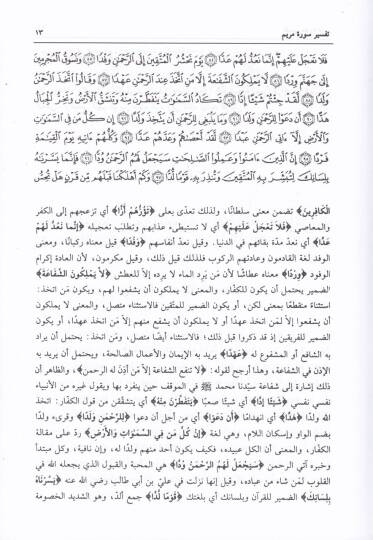 تفسير سورة مريم ١٣
فَلَا تَعْجَلْ عَلَيْهِمْ إِنَّمَا نَعُدُّ لَهُمْ عَدًّا ۝ يَوْمَ نَحْشُرُ الْمُتَّقِينَ إِلَى الرَّحْمَٰنِ وَفْدًا ۝ وَنَسُوقُ الْمُجْرِمِينَ
إِلَىٰ جَهَنَّمَ وِرْدًا ۝ لَّا يَمْلِكُونَ الشَّفَاعَةَ إِلَّا مَنِ اتَّخَذَ عِندَ الرَّحْمَٰنِ عَهْدًا ۝ وَقَالُوا اتَّخَذَ الرَّحْمَٰنُ
وَلَدًا ۝ لَّقَدْ جِئْتُمْ شَيْئًا إِدًّا ۝ تَكَادُ السَّمَاوَاتُ يَتَفَطَّرْنَ مِنْهُ وَتَنشَقُّ الْأَرْضُ وَتَخِرُّ الْجِبَالُ
هَدًّا ۝ أَن دَعَوْا لِلرَّحْمَٰنِ وَلَدًا ۝ وَمَا يَنبَغِي لِلرَّحْمَٰنِ أَن يَتَّخِذَ وَلَدًا ۝ إِن كُلُّ مَن فِي السَّمَاوَاتِ
وَالْأَرْضِ إِلَّا آتِي الرَّحْمَٰنِ عَبْدًا ۝ لَّقَدْ أَحْصَاهُمْ وَعَدَّهُمْ عَدًّا ۝ وَكُلُّهُمْ آتِيهِ يَوْمَ الْقِيَامَةِ
فَرْدًا ۝ إِنَّ الَّذِينَ آمَنُوا وَعَمِلُوا الصَّالِحَاتِ سَيَجْعَلُ لَهُمُ الرَّحْمَٰنُ وُدًّا ۝ فَإِنَّمَا يَسَّرْنَاهُ
بِلِسَانِكَ لِتُبَشِّرَ بِهِ الْمُتَّقِينَ وَتُنذِرَ بِهِ قَوْمًا لُّدًّا ۝ وَكَمْ أَهْلَكْنَا قَبْلَهُم مِّن قَرْنٍ هَلْ تُحِسُّ
الْكَافِرِينَ﴾ تضمن معنى سلطانًا، ولذلك تعدّى بعلى ﴿تَؤُزُّهُمْ أَزًّا﴾ أي تزعجهم إلى الكفر
والمعاصي ﴿فَلَا تَعْجَلْ عَلَيْهِمْ﴾ أي لا تستبطىء عذابهم وتطلب تعجيله ﴿إِنَّمَا نَعُدُّ لَهُمْ
عَدًّا﴾ أي نعدّ مدّة بقائهم في الدنيا. وقيل نعدّ أنفاسهم ﴿وَفْدًا﴾ قيل معناه ركبانًا، ومعنى
الوفد لغة القادمون وعادتهم الركوب فلذلك قيل ذلك، وقيل مكرمون، لأن العادة إكرام
الوفود ﴿وِرْدًا﴾ معناه عطاشًا لأن مَن يَرِد الماء لا يرده إلاّ للعطش ﴿لاَّ يَمْلِكُونَ الشَّفَاعَةَ﴾
الضمير يحتمل أن يكون للكفّار، والمعنى لا يملكون أن يشفعوا لهم، ويكون مَن اتخذ:
استثناءً منقطعًا بمعنى لكن، أو يكون الضمير للمتّقين فالاستثناء متصل، والمعنى لا يملكون
أن يشفعوا إلاّ لمَن اتخذ عهدًا أو لا يملكون أن يشفع منهم إلاّ مَن اتخذ عهدًا، أو يكون
الضمير للفريقين إذ قد ذكروا قبل ذلك؛ فالاستثناء أيضًا متصل، ومَن اتخذ: يحتمل أن يراد
به الشافع أو المشفوع له ﴿عَهْدًا﴾ يريد به الإيمان والأعمال الصالحة، ويحتمل أن يريد به
الإذن في الشفاعة، وهذا أرجح لقوله: ﴿لا تنفع الشفاعة إلاّ مَن أَذِنَ له الرحمن﴾، والظاهر أن
ذلك إشارة إلى شفاعة سيّدنا محمد ﷺ في الموقف حين ينفرد بها ويقول غيره من الأنبياء
نفسي نفسي ﴿شَيْئًا إِدًّا﴾ أي شيئًا صعبًا ﴿يَتَفَطَّرْنَ مِنْهُ﴾ أي يتشقّقن من قول الكفّار: اتخذ
الله ولدًا ﴿هَدًّا﴾ أي انهدامًا ﴿أَن دَعَوْا﴾ أي من أجل أن دعوا ﴿لِلرَّحْمَنِ وَلَدًا﴾ وقرىء ولدًا
بضم الواو وإسكان اللام، وهي لغة ﴿إِن كُلُّ مَن فِي السَّمَوَاتِ وَالأَرْضِ﴾ ردّ على مقالة
الكفّار، والمعنى أن الكل عبيده، فكيف يكون أحد منهم ولدًا له، وإن نافية، وكل مبتدأ
وخبره آتي الرحمن ﴿سَيَجْعَلُ لَهُمُ الرَّحْمَنُ وُدًّا﴾ هي المحبة والقبول الذي يجعله الله في
القلوب لمَن شاء من عباده، وقيل إنها نزلت في عليّ بن أبي طالب رضي الله عنه ﴿يَسَّرْنَاهُ
بِلِسَانِكَ﴾ الضمير للقرآن وبلسانك أي بلغتك ﴿قَوْمًا لُّدًّا﴾ جمع ألدّ، وهو الشديد الخصومة